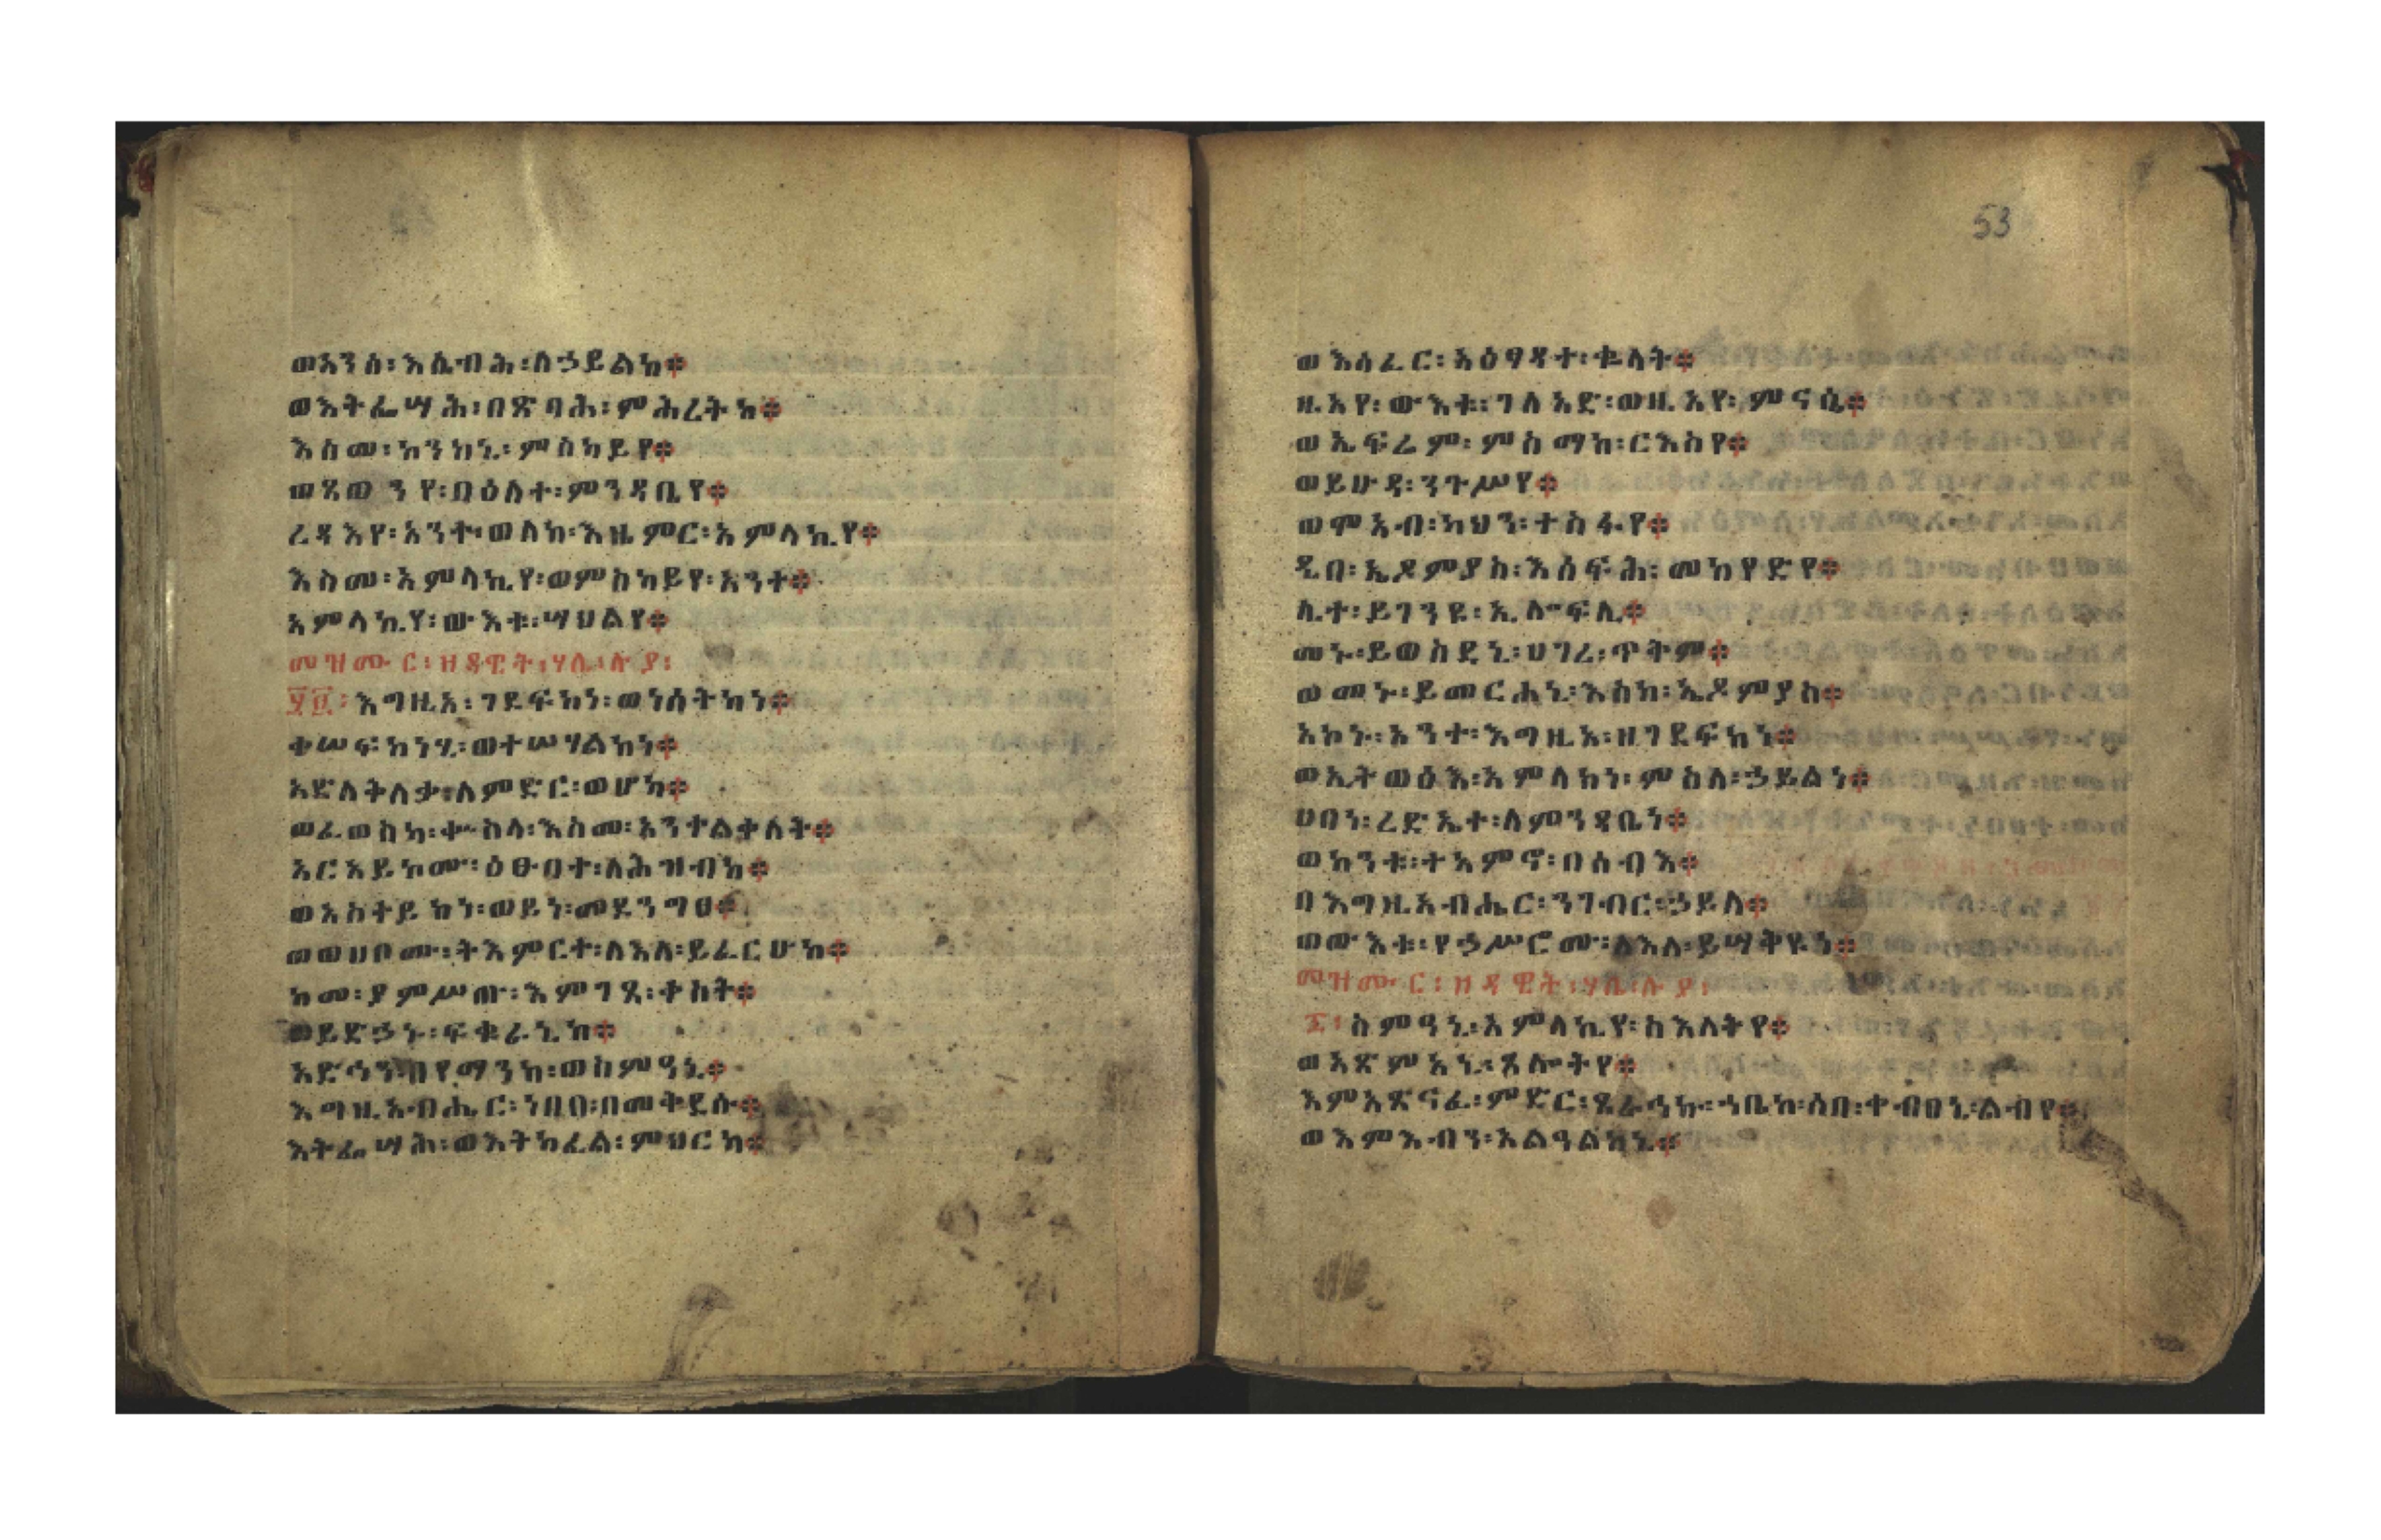 ወአንሰ፡እሴብሕ፡ለኃይልከ፨
ወእትፌሣሕ፡በጽባሕ፡ምሕረትከ፨
እስመ፡ኮንከኒ፡ምስካይየ፨
ወጸወንየ፡በዕለተ፡ምንዳቤየ፨
ረዳእየ፡አንተ፡ወለከ፡እዜምር፡አምላኪየ፨
እስመ፡አምላኪየ፡ወምስካይየ፡አንተ፨
አምላኪየ፡ውእቱ፡ሣህልየ፨
መዝሙር፡ዘዳዊት፡ሃሌ፡ሉያ፡
፶፱፡እግዚአ፡ገደፍከነ፡ወነሰትከነ፨
ቀሠፍከነሂ፡ወተሠሃልከነ፨
አድለቅለቃ፡ለምድር፡ወሆካ፨
ወፈወስካ፡ቍስላ፡እስመ፡አንተልቀለት፨
አርአይኮሙ፡ዕፁበተ፡ለሕዝብከ፨
ወአስተይከነ፡ወይነ፡መደንግፀ፨
ወወሀቦሙ፡ትእምርተ፡ለእለ፡ይፈርሁከ፨
ከመ፡ያምሥጡ፡እምገጸ፡ቀስት፨
ወይድኃኑ፡ፍቁራኒከ፨
አድኅን፡በየማንከ፡ወስምዓኒ፨
እግዚአብሔር፡ነበበ፡በመቅደሱ፨
እትፌሣሕ፡ወእትካፈል፡ምህርካ፨
53
ወእሰፈር፡አዕፃዳተ፡ቄላት፨
ዚአየ፡ውእቱ፡ገለአድ፡ወዚአየ፡ምናሴ፨
ወኤፍሬም፡ምስማከ፡ርእስየ፨
ወይሁዳ፡ንጉሥየ፨
ወሞአብ፡ካህን፡ተስፋየ፨
ዲበ፡ኤዶምያስ፡እሰፍሕ፡መከየድየ፨
ሊተ፡ይገንዩ፡ኢሎፍሊ፨
መኑ፡ይወስደኒ፡ሀገረ፡ጥቅም፨
ወመኑ፡ይመርሐኒ፡እስከ፡ኤዶምያስ፨
አኮኑ፡አንተ፡እግዚአ፡ዘገደፍከነ፨
ወኢትወፅእ፡አምላክነ፡ምስለ፡ኃይልነ፨
ሀበነ፡ረድኤተ፡ለምንዳቤነ፨
ወከንቱ፡ተአምኖ፡በሰብእ፨
በእግዚአብሔር፡ንገብር፡ኃይለ፨
ወውእቱ፡የኃሥሮሙ፡ለእለ፡ይሣቅዩነ፨
መዝሙር፡ዘዳዊት፡ሃሌ፡ሉያ፡
፷፡ስምዓኒ፡አምላኪየ፡ስእለትየ፨
ወአጽምአኒ፡ጸሎትየ፨
እምአጽናፈ፡ምድር፡ጸራኅኩ፡ኀቤከ፡ሶበ፡ተብፀኒ፡ልብየ፨
ወእምእብን፡አልዓልከኒ፨